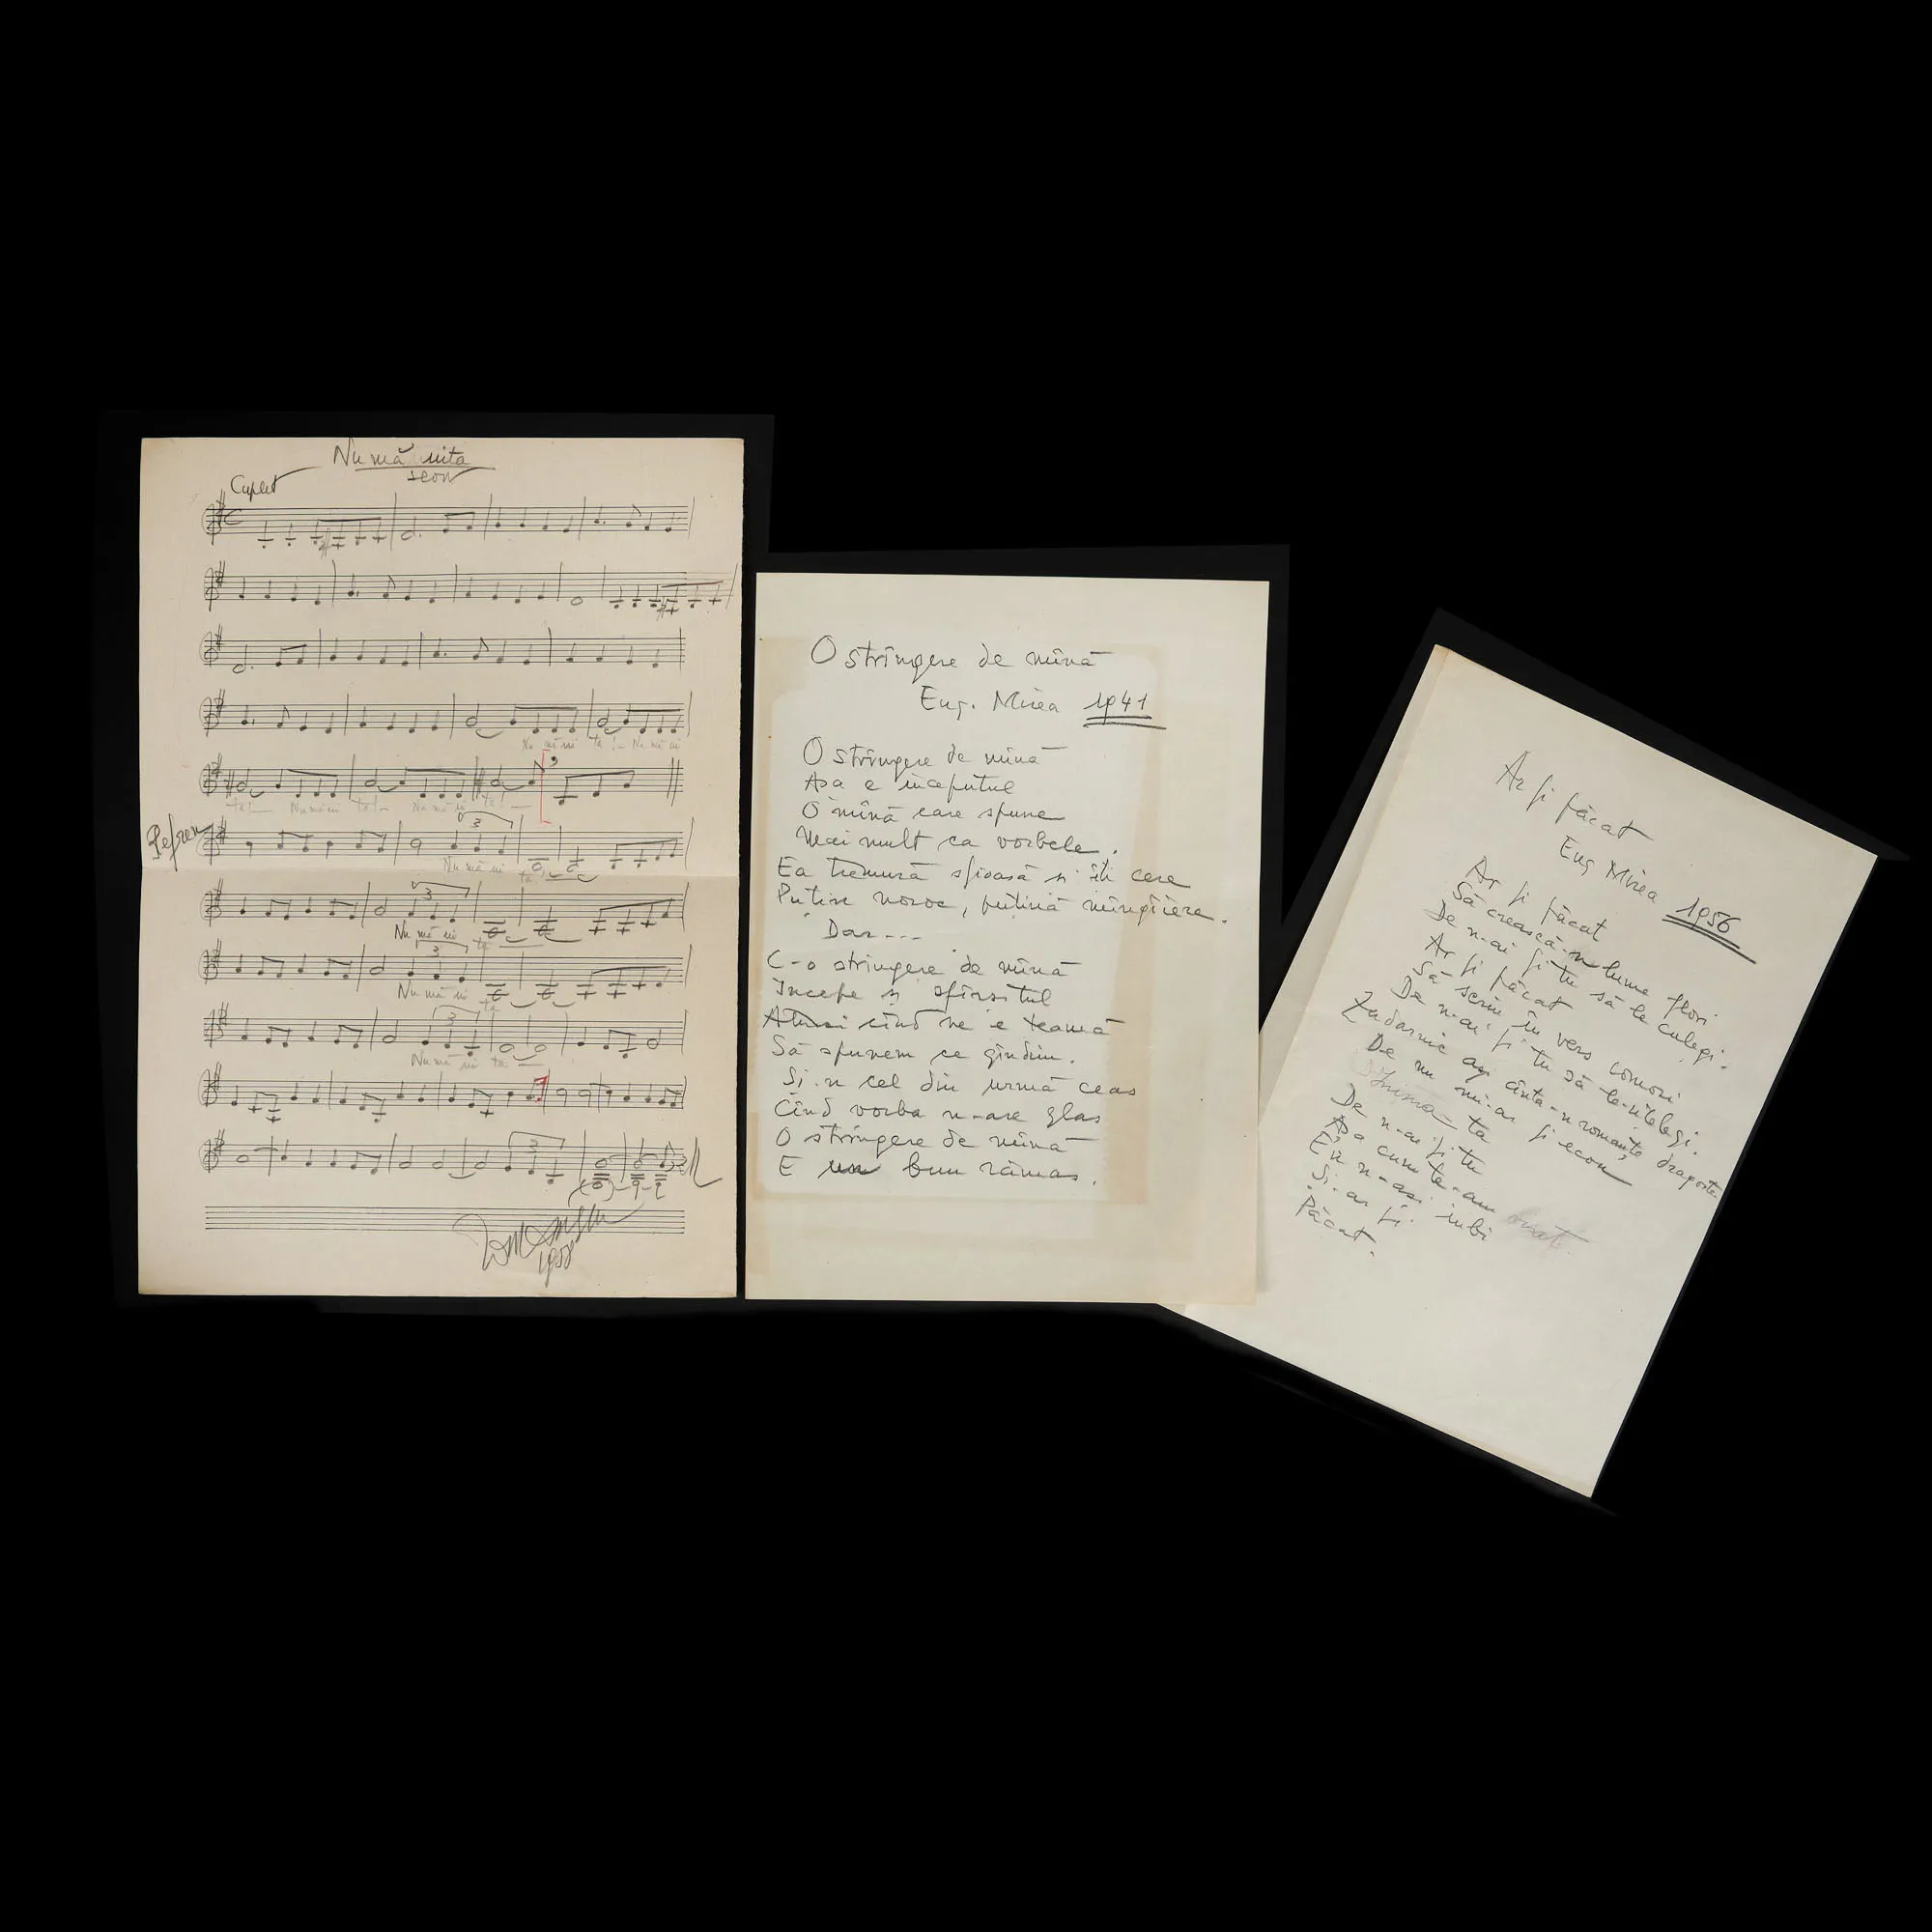 Nu mă uita
Cuplet
Nu mă ui ta! - Nu mă ui
ta! Nu mă ui ta! Nu mă ui ta!
Refren
3
Nu mă ui ta
3
Nu mă ui ta
3
Nu mă ui ta
3
Nu mă ui ta
3
1958
O strîngere de mînă
Eug. Mirea 1941
O strîngere de mînă
Așa e începutul
O mînă care spune
Mai mult ca vorbele.
Ea tremură sfioasă și îți cere
Puțin noroc, puțină mîngîiere.
Dar---
C-o strîngere de mînă
Începe și sfîrșitul
Atunci cînd ne e teamă
Să spunem ce gîndim.
Și-n cel din urmă ceas
Cînd vorba n-are glas
O strîngere de mînă
E un bun rămas.
Ar fi păcat
Eug Mirea 1956
Ar fi păcat
Să crească-n lume flori
De n-ai fi tu să le culegi.
Ar fi păcat
Să scriu în vers comori
De n-ai fi tu să le-nțelegi.
Zadarnic aș cînta-n romanțe dragostea
De nu mi-ar fi ecou
Inima ta
De n-ai fi tu
Așa cum te-am
Eu n-aș iubi
Și-ar fi
Păcat.